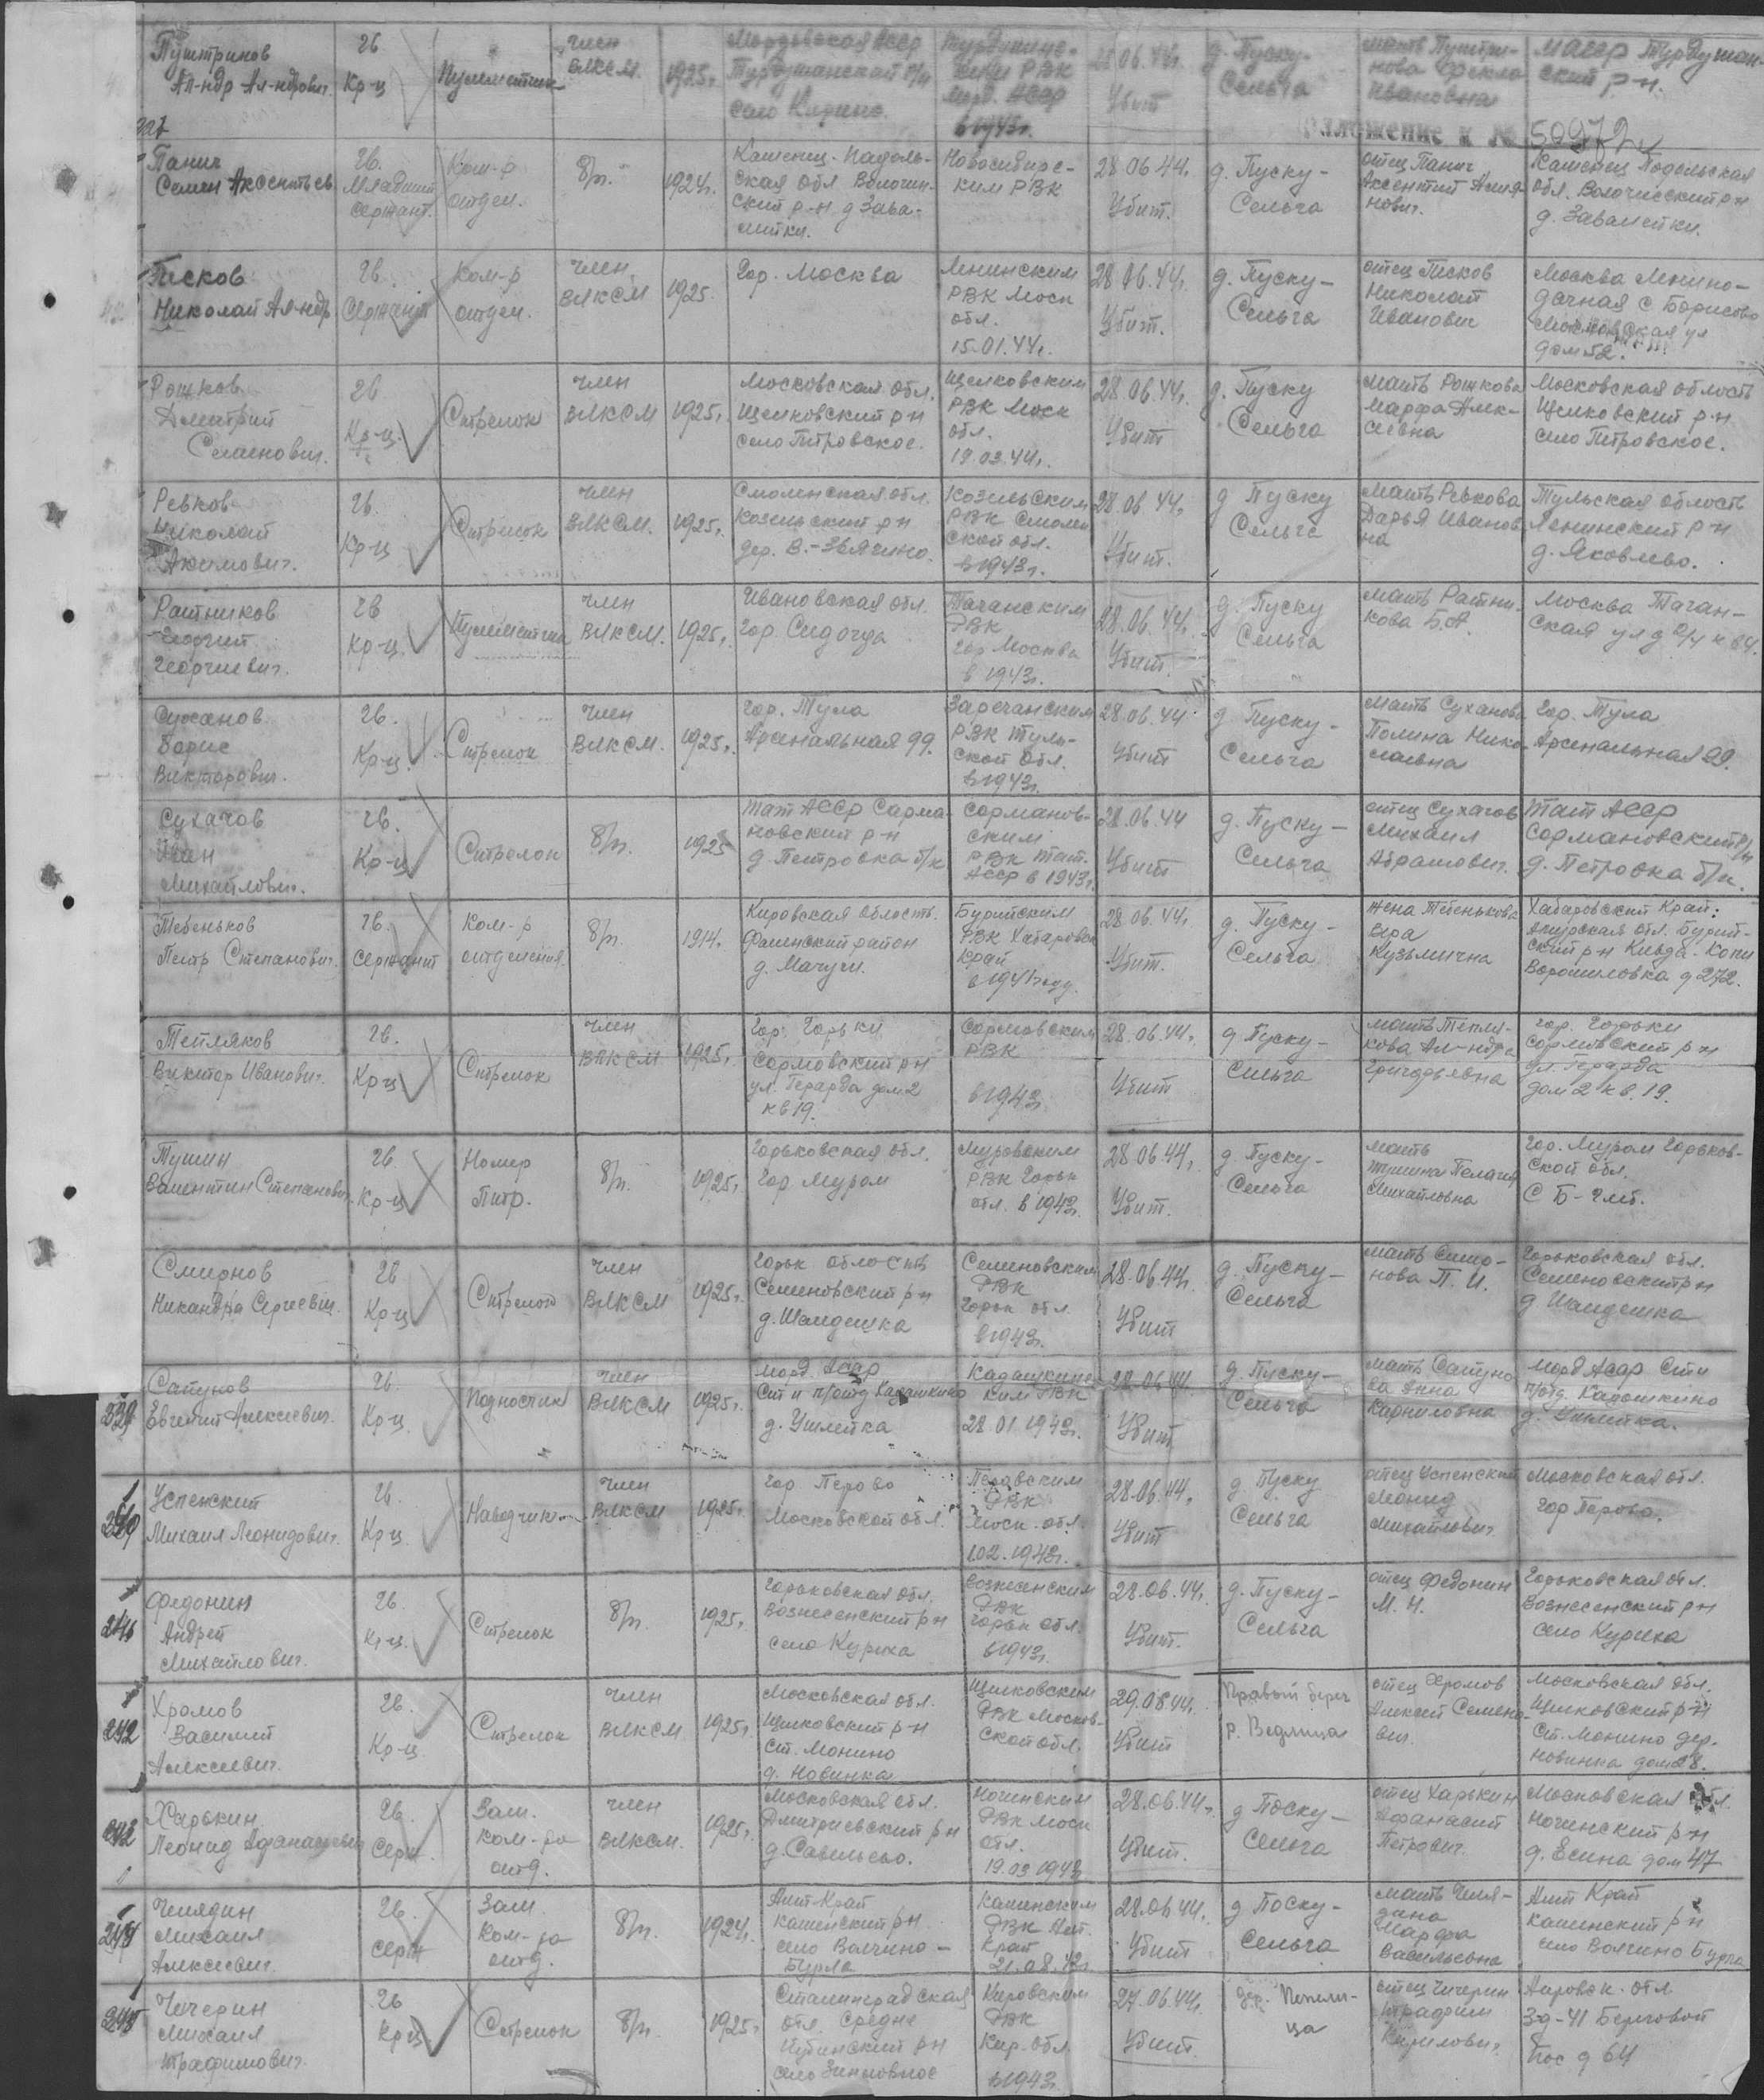 Пуштриков
Ал-ндр Ал-ндрович
гв
Кр-ц
Пулеметчик
член
ВЛКСМ
1925г.
Мордовская АССР
село
РВК
Морд. АССР
в 1943г.
28.06.44г.
Убит
д. Пуску-
Сельга
мать Пуштри-
нова Фекла
Ивановна
МАССР
ский р-н.
Приложение к №
Панич
Семен Аксентьев
гв.
Младший
сержант.
Ком-р
отдел.
б/п.
1924г.
Каменец-Подоль-
ская обл Волочис-
ский р-н д Зава-
лийки.
Новосибирс-
ким РВК
28.06 44г.
Убит.
д. Пуску-
Сельга
отец Панич
Аксентий
нович.
Каменец Подольская
обл. Волочисский р-н
д. Завалийки.
Писков
Николай Ал-ндр
гв.
Сержант
Ком-р
отдел.
член
ВЛКСМ
1925.
Гор. Москва
Ленинским
РВК Моск
обл.
15.01.44г.
28 06.44г.
Убит.
д. Пуску-
Сельга
отец Писков
Николай
Иванович
Москва Ленино-
дачная с Борисово
Московская ул
дом 52.
Рожков
Дмитрий
Семенович.
гв
Кр-ц.
Стрелок
член
ВЛКСМ
1925г.
Московская обл.
Щелковский р-н
село Петровское.
Щелковским
РВК Моск
обл.
19.03.44г.
28 06.44г.
Убит
д. Пуску
Сельга
мать Рожкова
Марфа Алек-
сеевна
Московская область
Щелковский р-н
село Петровское.
Ревков
Николай
Акимович.
гв.
Кр-ц
Стрелок
член
ВЛКСМ.
1925г.
Смоленская обл.
Козельский р-н
дер. В.-Звягино.
Козельским
РВК Смолен
ской обл.
в 1943г.
28.06 44г.
Убит.
д Пуску
Сельга
мать Ревкова
Дарья Иванов
на
Тульская область
Ленинский р-н
д. Яковлево.
Ратников
Георгий
Георгиевич.
гв
Кр-ц.
Пулеметчик
член
ВЛКСМ.
1925г.
Ивановская обл.
гор. Судогда
Таганским
РВК
гор Москва
в 1943г.
28.06.44г.
Убит.
д. Пуску
Сельга
мать Ратни-
кова Б.А.
Москва Таган-
ская ул д
Суханов
Борис
Викторович.
гв.
Кр-ц.
Стрелок
член
ВЛКСМ.
1925г.
гор. Тула
Арсенальная 99.
Заречанским
РВК Туль-
ской обл.
в 1943г.
28.06.44.
Убит
д Пуску-
Сельга
мать Суханова
Полина Нико-
лаевна
гор. Тула
Арсенальная 99.
Сухачов
Иван
Михайлович.
гв.
Кр-ц
Стрелок
б/п.
1925
Тат АССР Сарма-
новский р-н
д Петровка б/к
Сорманов-
ским
РВК Тат.
АССР в 1943г.
28.06.44
Убит
д. Пуску-
Сельга
отец Сухачов
Михаил
Абрамович.
Тат АССР
Сормановский р/н
д. Петровка б/к.
Тебеньков
Петр Степанович.
гв.
Сержант
Ком-р
отделения.
б/п.
1914г.
Кировская область.
Фаленский район
д. Мачуги.
Бурейским
РВК Хабаровск
край
в 1941 году.
28.06.44г.
Убит.
д. Пуску-
Сельга
жена Тебенькова
Кузьминична
Хабаровский край:
Амурская обл. Бурей-
ский р-н Кивда-Копи
Ворошиловка д 272.
Тепляков
Виктор Иванович.
гв.
Кр-ц
Стрелок
член
ВЛКСМ
1925г.
Гор. Горьки
Сормовский р-н
ул. Герарда дом 2
кв 19.
Сормовским
РВК
в 1943г.
28.06.44г.
Убит
д Пуску-
Сельга
мать Тепля-
кова Ал-ндра
Григорьевна
гор. Горьки
Сормовский р-н
ул. Герарда
дом 2 кв. 19.
Тушин
Валентин Степанович
гв
Кр-ц
Номер
Птр.
б/п.
1925г.
Горьковская обл.
Гор Муром
Муромским
РВК Горьк
обл. в 1943г.
28 06.44г.
Убит.
д. Пуску-
Сельга
мать
Тушина Пелагия
Михайловна
гор. Муром Горьков-
ской обл.
Смирнов
Никандра Сергеевич.
гв
Кр-ц
Стрелок
член
ВЛКСМ
1925г.
Горьк область
Семеновский р-н
д. Шалдешка
Семеновским
РВК
Горьк обл.
в 1943г.
28.06.44г.
Убит
д. Пуску-
Сельга
мать
нова П. И.
Горьковская обл.
Семеновский р-н
д. Шалдешка
239
Сапунов
Евгений Алексеевич.
гв.
Кр-ц.
Подносчик
член
ВЛКСМ
1925г.
морд АССР
Ст и п/отд Кадошкино
д. Уплейка
Кадошкинс-
ким РВК
28.01 1943г.
28.06.44.
Убит
д. Пуску-
Сельга
мать Сапуно-
ва Анна
Корниловна
морд АССР Ст и
п/отд. Кадошкино
240
Успенский
Михаил Леонидович.
гв.
Кр-ц.
Наводчик
член
ВЛКСМ
1925г.
гор Перово
Московской обл.
Перовским
РВК
Моск. обл.
1.02.1943г.
28.06.44г.
Убит
д Пуску
Сельга
отец Успенский
Леонид
Михайлович.
Московская обл.
гор Перово.
241
Федонин
Андрей
Михайлович.
гв.
Кр-ц.
Стрелок
б/п.
1925г.
Горьковская обл.
Вознесенский р-н
село Куриха
Вознесенским
РВК
Горьк обл.
в 1943г.
28.06.44г.
Убит.
д. Пуску-
Сельга
отец Федонин
М. Н.
Горьковская обл.
Вознесенский р-н
село Куриха
242
Хромов
Василий
Алексеевич.
гв.
Кр-ц.
Стрелок
член
ВЛКСМ
1925г.
Московская обл.
Щелковский р-н
ст. Монино
д. Новинка
Щелковским
РВК Москов-
ской обл.
29.08.44г.
Убит
Правый берег
р. Ведлица
отец Хромов
Алексей Семено-
вич.
Московская обл.
Щелковский р-н
ст. Монино дер.
Новинка дом 28.
243
Харькин
Леонид Афанасьевич
гв.
Серж.
Зам.
Ком-ра
отд.
член
ВЛКСМ.
1925г.
Московская обл.
Дмитриевский р-н
д. Савельево.
Ногинским
РВК Моск
обл.
19.03 1943г.
28.06.44г.
Убит.
д Поску-
Сельга
отец Харькин
Афанасий
Петрович.
Московская обл.
Ногинский р-н
д. Есина дом 47
244
Чиладин
Михаил
Алексеевич.
гв.
Серж
Зам.
Ком-ра
отд.
б/п.
1924г.
Алт-Край
Каменский р-н
село Волчино-
Бурла
Каменским
РВК Алт.
Край
21.08.42г.
28.06 44г.
Убит
д Поску-
Сельга
мать Чила-
дина
Марфа
Васильевна
Алт Край
Каменский р-н
село Волчино Бурла
245
Чичерин
Михаил
Трафимович.
гв
Кр-ц.
Стрелок
б/п.
1925г.
Сталинградская
обл. Средне
Кировским
РВК
Кир. обл.
в 1943г.
27.06.44г.
Убит.
отец Чичерин
Трафим
Кировск. обл
3-д-41 Береговой
Пос д 64